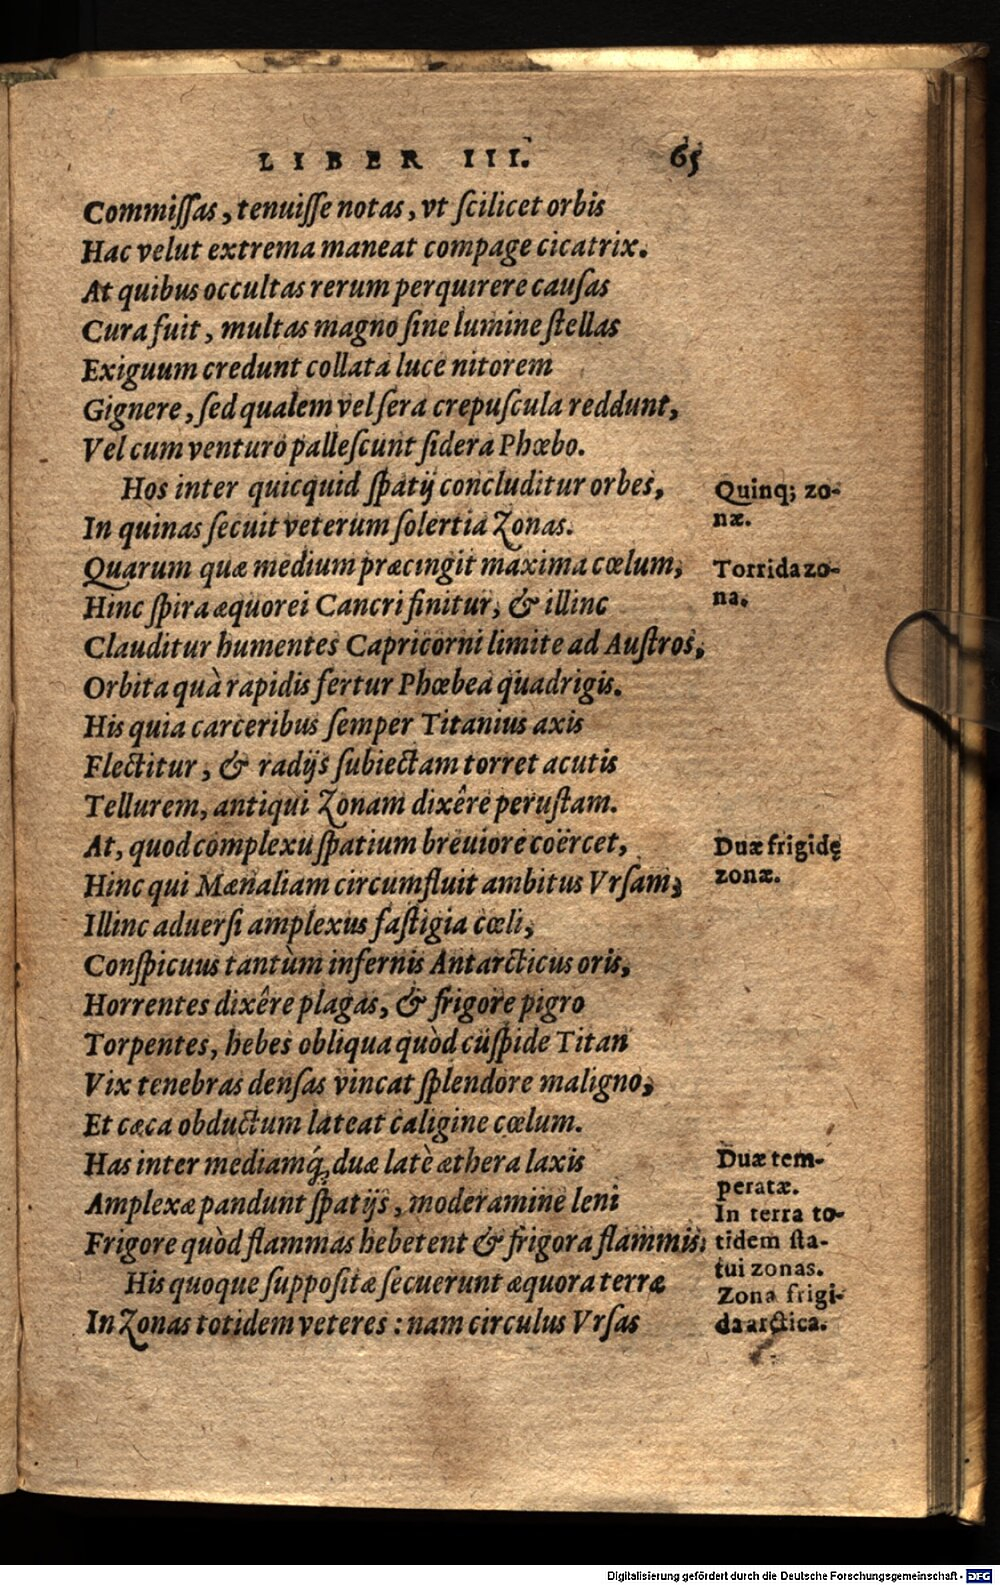 LIBER III. 65
Commiſſas, tenuiſſe notas, vt ſcilicet orbis
Hac velut extrema maneat compage cicatrix.
At quibus occultas rerum perquirere cauſas
Cura fuit, multas magno ſine lumine ſtellas
Exiguum credunt collata luce nitorem
Gignere, ſed qualem vel ſera crepuſcula reddunt,
Vel cum venturo palleſcunt ſidera Phœbo.
Hos inter quicquid ſpatij concluditur orbes,
In quinas ſecuit veterum ſolertia Zonas.
Quarum quæ medium præcingit maxima cœlum,
Hinc ſpira æquorei Cancri finitur, & illinc
Clauditur humentes Capricorni limite ad Auſtros,
Orbita quà rapidis fertur Phœbea quadrigis.
His quia carceribus ſemper Titanius axis
Flectitur, & radijs ſubiectam torret acutis
Tellurem, antiqui Zonam dixêre peruſtam.
At, quod complexu ſpatium breuiore coërcet,
Hinc qui Mænaliam circumfluit ambitus Vrſam,
Illinc aduerſi amplexus faſtigia cœli,
Conſpicuus tantùm infernis Antarcticus oris,
Horrentes dixêre plagas, & frigore pigro
Torpentes, hebes obliqua quòd cuſpide Titan
Vix tenebras denſas vincat ſplendore maligno,
Et cæca obductum lateat caligine cœlum.
Has inter mediamq́; duæ latè æthera laxis
Amplexæ pandunt ſpatijs, moderamine leni
Frigore quòd flammas hebetent & frigora flammis.
His quoque ſuppoſitæ ſecuerunt æquora terræ
In Zonas totidem veteres: nam circulus Vrſas
Quinq; zo-
næ.
Torrida zo-
na.
Duæ frigidę
zonæ.
Duæ tem-
peratæ.
In terra to-
tidem ſta-
tui zonas.
Zona frigi-
da arctica.
Digitalisierung gefördert durch die Deutsche Forschungsgemeinschaft - DFG